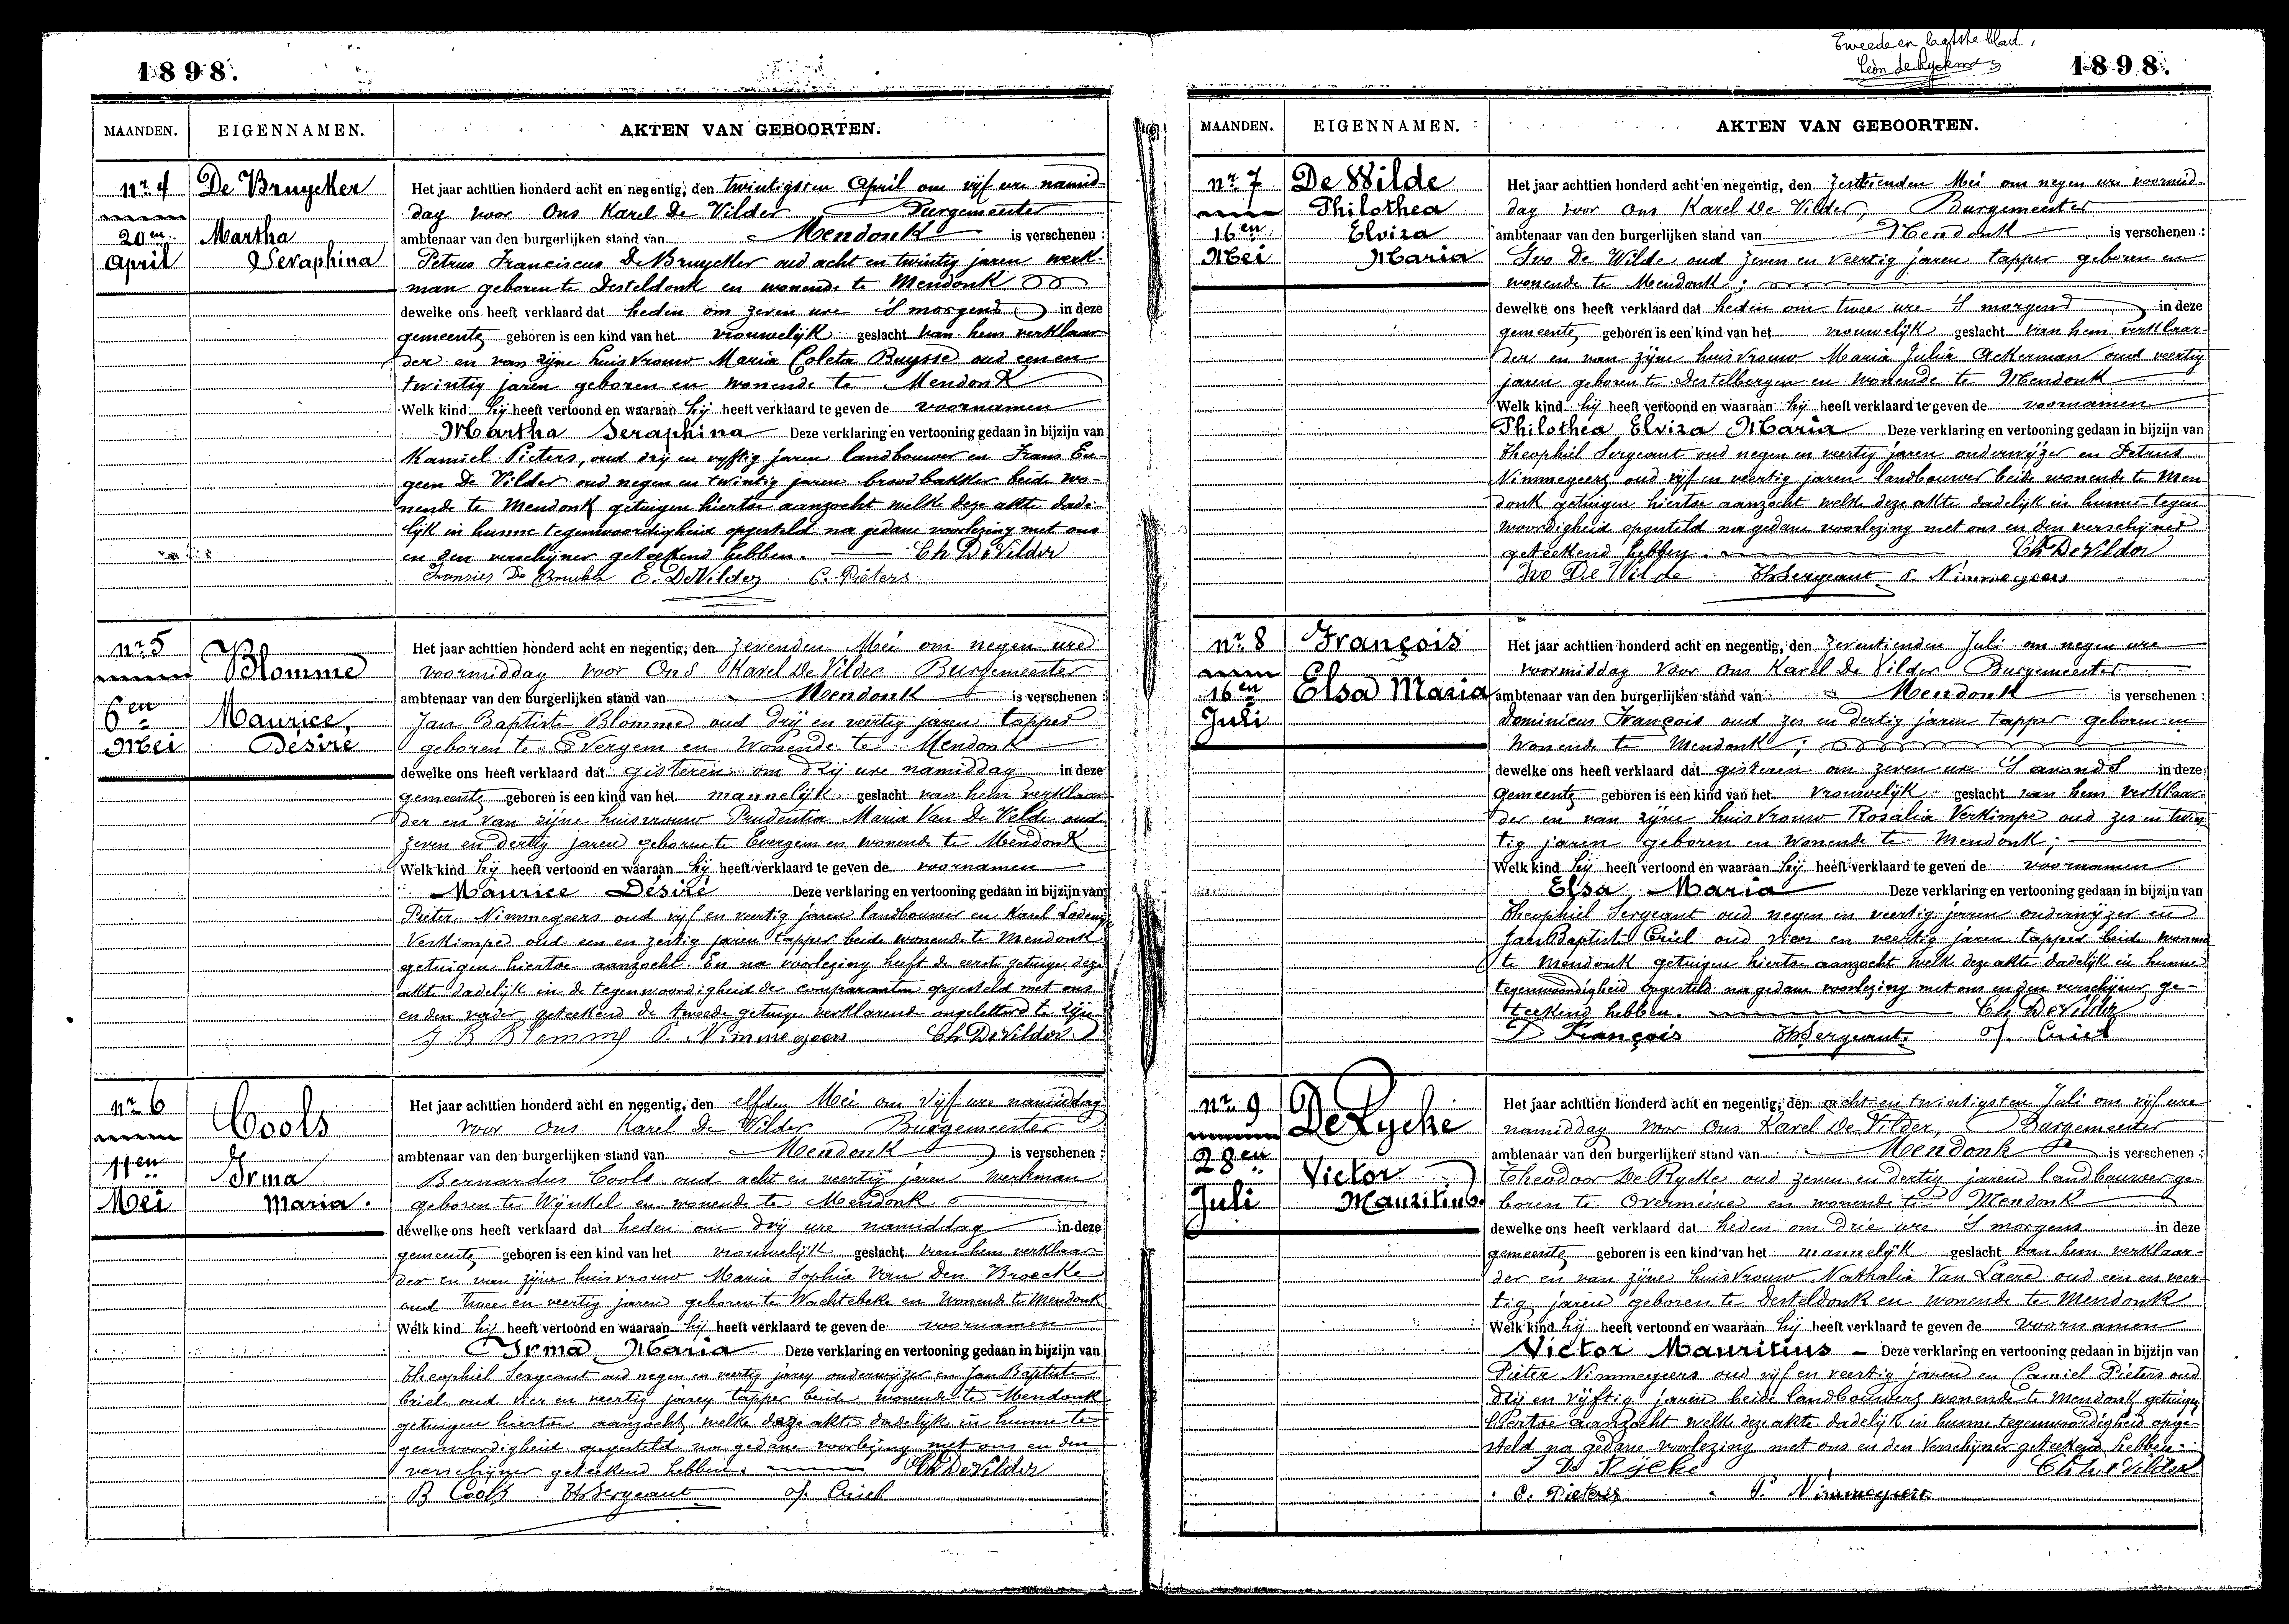 1898.
MAANDEN. EIGENNAMEN. AKTEN VAN GEBOORTEN.
nr 4 De Bruycker
20en Martha
April Seraphina
Het jaar achttien honderd acht en negentig, den twintigsten April om vijf ure namid-
dag voor Ons Karel De Vilder Burgemeester
ambtenaar van den burgerlijken stand van Mendonk is verschenen :
Petrus Franciscus De Bruycker oud acht en twintig jaren werk-
man geboren te Desteldonk en wonende te Mendonk
dewelke ons heeft verklaard dat heden om zeven ure 's morgens in deze
gemeente geboren is een kind van het vrouwelijk geslacht van hem verklaar-
der en van zijne huisvrouw Maria Coleta Buysse oud een en
twintig jaren geboren en wonende te Mendonk
Welk kind hij heeft vertoond en waaraan hij heeft verklaard te geven de voornamen
Martha Seraphina Deze verklaring en vertooning gedaan in bijzijn van
Kamiel Pieters, oud drij en vyftig jaren landbouwer en Frans Eu-
geen De Vilder oud negen en twintig jaren broodbakker beide wo-
nende te Mendonk getuigen hiertoe aanzocht welke deze akte dade-
lijk in hunne tegenwoordigheid opgesteld na gedane voorlezing met ons
en den verschijner geteekend hebben. Ch De Vilder
E. De Vilder C. Pieters
nr 5 Blomme
6en Maurice
Mei Désiré
Het jaar achttien honderd acht en negentig, den zevenden Mei om negen ure
voormiddag voor Ons Karel De Vilder Burgemeester
ambtenaar van den burgerlijken stand van Mendonk is verschenen :
Jan Baptiste Blomme oud drij en veertig jaren tapper
geboren te Evergem en Wonende te Mendonk
dewelke ons heeft verklaard dat gisteren om drij ure namiddag in deze
gemeente geboren is een kind van het mannelijk geslacht van hem verklaar-
der en van zijne huisvrouw Prudentia Maria Van De Velde oud
zeven en dertig jaren geboren te Evergem en wonende te Mendonk
Welk kind hij heeft vertoond en waaraan hij heeft verklaard te geven de voornamen
Maurice Désiré Deze verklaring en vertooning gedaan in bijzijn van
Pieter Nimmegeers oud vijf en veertig jaren landbouwer en Karel Lodewijk
Verkimpe oud een en zestig jaren tapper beide wonende te Mendonk
getuigen hiertoe aanzocht. En na voorlezing heeft de eerste getuige deze
akte dadelijk in de tegenwoordigheid der comparanten opgesteld met ons
en den vader geteekend de tweede getuige verklarende ongeletterd te zijn
J B Blomme P. Nimmegeers Ch De Vilder
nr 6 Cools
11en Irma
Mei Maria.
Het jaar achttien honderd acht en negentig, den elfden Mei om vijf ure namiddag
voor ons Karel De Vilder Burgemeester
ambtenaar van den burgerlijken stand van Mendonk is verschenen :
Bernardus Cools oud acht en veertig jaren werkman
geboren te Wijnkel en wonende te Mendonk
dewelke ons heeft verklaard dat heden om drij ure namiddag in deze
gemeente geboren is een kind van het vrouwelijk geslacht van hem verklaar-
der en van zijne huisvrouw Maria Sophia Van Den Broecke
oud twee en veertig jaren geboren te Wachtebeke en Wonende te Mendonk
Welk kind hij heeft vertoond en waaraan hij heeft verklaard te geven de voornamen
Irma Maria Deze verklaring en vertooning gedaan in bijzijn van
Theophiel Sergeant oud negen en veertig jaren onderwijzer en Jan Baptiste
Criel oud vier en veertig jaren tapper beide wonende te Mendonk
getuigen hiertoe aanzocht welke deze akte dadelijk in hunne te-
genwoordigheid opgesteld na gedane voorlezing met ons en den
verschijner geteekend hebben. Ch De Vilder
B Cools Th Sergeant J. Criel
Tweede en laatste blad,
1898.
MAANDEN. EIGENNAMEN. AKTEN VAN GEBOORTEN.
nr 7 De Wilde
Philothea
16en Elvira
Mei Maria
Het jaar achttien honderd acht en negentig, den zestienden Mei om negen ure voormid-
dag voor Ons Karel De Vilder, Burgemeester
ambtenaar van den burgerlijken stand van Mendonk is verschenen :
Ivo De Wilde oud zeven en veertig jaren tapper geboren en
wonende te Mendonk ;
dewelke ons heeft verklaard dat heden om twee ure 's morgens in deze
gemeente geboren is een kind van het vrouwelijk geslacht van hem verklaar-
der en van zijne huisvrouw Maria Julia Ackerman oud veertig
jaren geboren te Destelbergen en wonende te Mendonk
Welk kind hij heeft vertoond en waaraan hij heeft verklaard te geven de voornamen
Philothea Elvira Maria Deze verklaring en vertooning gedaan in bijzijn van
Theophiel Sergeant oud negen en veertig jaren onderwijzer en Petrus
Nimmegeers oud vijf en veertig jaren landbouwer beide wonende te Men-
donk getuigen hiertoe aanzocht welke deze akte dadelijk in hunne tegen-
woordigheid opgesteld na gedane voorlezing met ons en den verschijner
geteekend hebben. Ch De Vilder
Ivo De Wilde Th Sergeant P. Nimmegeers
nr 8 François
16en Elsa Maria
Juli
Het jaar achttien honderd acht en negentig, den zeventienden Juli om negen ure
voormiddag voor Ons Karel De Vilder Burgemeester
ambtenaar van den burgerlijken stand van Mendonk is verschenen :
Dominicus François oud zes en dertig jaren tapper geboren en
Wonende te Mendonk ;
dewelke ons heeft verklaard dat gisteren om zeven ure 's avonds in deze
gemeente geboren is een kind van het vrouwelijk geslacht van hem verklaar-
der en van zijne huisvrouw Rosalia Verkimpe oud zes en twin-
tig jaren geboren en Wonende te Mendonk ;
Welk kind hij heeft vertoond en waaraan hij heeft verklaard te geven de voornamen
Elsa Maria Deze verklaring en vertooning gedaan in bijzijn van
Theophiel Sergeant oud negen en veertig jaren onderwijzer en
Jan Baptiste Criel oud vier en veertig jaren tapper beide wonend
te Mendonk getuigen hiertoe aanzocht welke deze akte dadelijk in hunne
tegenwoordigheid opgesteld na gedane voorlezing met ons en den verschijner ge-
teekend hebben. Ch De Vilder
D François Th Sergeant. J. Criel
nr 9 De Rycke
28en Victor
Juli Mauritius.
Het jaar achttien honderd acht en negentig, den acht en twintigsten Juli om vijf ure
namiddag voor Ons Karel De Vilder, Burgemeester
ambtenaar van den burgerlijken stand van Mendonk is verschenen :
Theodoor De Rycke oud zeven en dertig jaren landbouwer ge-
boren te Overmeire en wonende te Mendonk
dewelke ons heeft verklaard dat heden om drie ure 's morgens in deze
gemeente geboren is een kind van het mannelijk geslacht van hem verklaar-
der en van zijne huisvrouw Nathalia Van Laere oud een en veer-
tig jaren geboren te Desteldonk en wonende te Mendonk
Welk kind hij heeft vertoond en waaraan hij heeft verklaard te geven de voornamen
Victor Mauritius Deze verklaring en vertooning gedaan in bijzijn van
Pieter Nimmegeers oud vijf en veertig jaren en Camiel Pieters oud
drij en vijftig jaren beide landbouwers wonende te Mendonk getuigen
hiertoe aanzocht welke deze akte dadelijk in hunne tegenwoordigheid opge-
steld na gedane voorlezing met ons en den Verschijner geteekend hebben.
T De Rycke Ch De Vilder
C. Pieters P. Nimmegeers